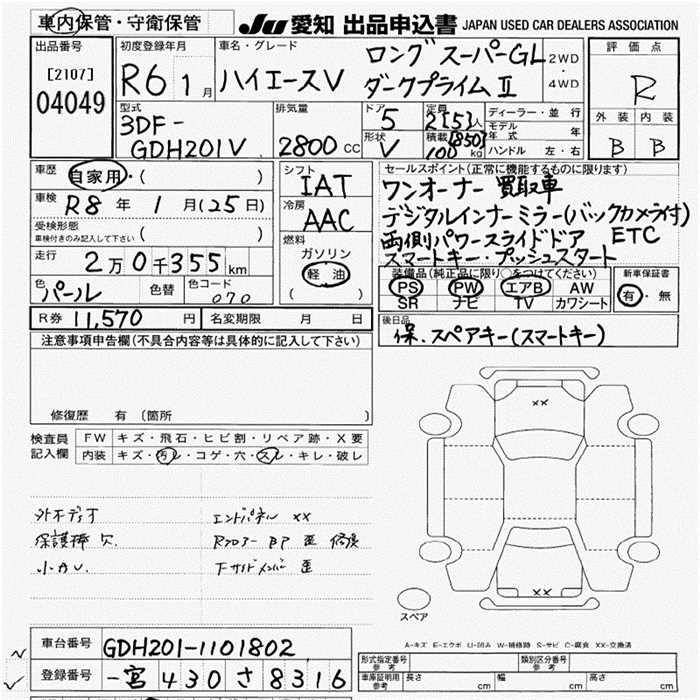 車内保管・守衛保管
JU 愛知 出品申込書 JAPAN USED CAR DEALERS ASSOCIATION
出品番号
[2107]
04049
初度登録年月
R6 1月
車名・グレード
ハイエースV
ロングスーパーGL
ダークプライムⅡ
2WD
・
4WD
評価点
R
外装 内装
B B
型式
3DF-
GDH201V
排気量
2800 CC
ドア
5
形状
V
定員
2[5]人
積載 [850]
100 kg
ディーラー・並行
モデル年式 年
ハンドル 左・右
車歴
自家用・( )
車検
R8年 1月(25日)
受検形態
車検付きのみ記入して下さい ( )
走行
2万0千355km
色
パール
色替
色コード
070
シフト
IAT
冷房
AAC
燃料
ガソリン
軽油
( )
セールスポイント(正常に機能するものに限り)
ワンオーナー 買取車
デジタルインナーミラー(バックカメラ付)
両側パワースライドドア ETC
スマートキー・プッシュスタート
装備品(純正品に限り○をつけてください)
PS PW エアB AW
SR ナビ TV カワシート
新車保証書
有・無
R券 11,570円
名変期限 月 日
後日品
保、スペアキー(スマートキー)
注意事項申告欄(不具合内容等は具体的に記入して下さい)
修復歴 有 (箇所 )
検査員
記入欄
FW キズ・飛石・ヒビ割・リペア跡・X要
内装 キズ・汚レ・コゲ・穴・スレ・キレ・破レ
外ホディオ
保護棒欠
小カU、
エンドパネル XX
Rフロアー BP 歪 修復
下サイドメンバー 歪
XX
XX
スペア
A-キズ E-エクボ U-凹み W-補修跡 S-サビ C-腐食 XX-交換済
車台番号 GDH201-1101802
登録番号 一宮 430 さ 8316
形式指定番号
参考
類別区分番号
参考
車庫証明用
参考
長さ cm 幅 cm 高さ cm